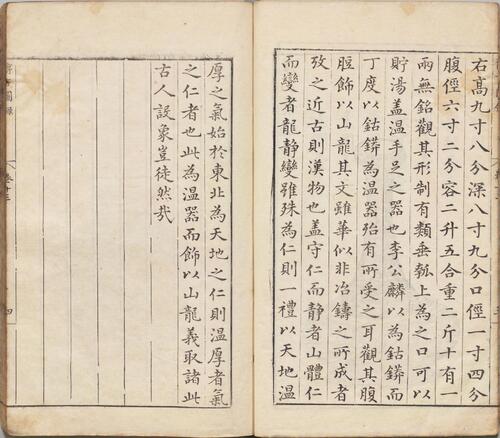 右高九寸八分深八寸九分口徑一寸四分
腹徑六寸二分容二升五合重二斤十有一
兩無銘觀其形制有類垂瓠上為之口可以
貯湯蓋溫手足之器也李公麟以為鈷鏻而
丁度以鈷鏻為溫器殆有所受之耳觀其腹
脰飾以山龍其文雖華似非冶鑄之所成者
攷之近古則漢物也蓋守仁而靜者山體仁
而變者龍靜變雖殊為仁則一禮以天地溫
厚之氣始於東北為天地之仁則溫厚者氣
之仁者也此為溫器而飾以山龍義取諸此
古人設象豈徒然哉